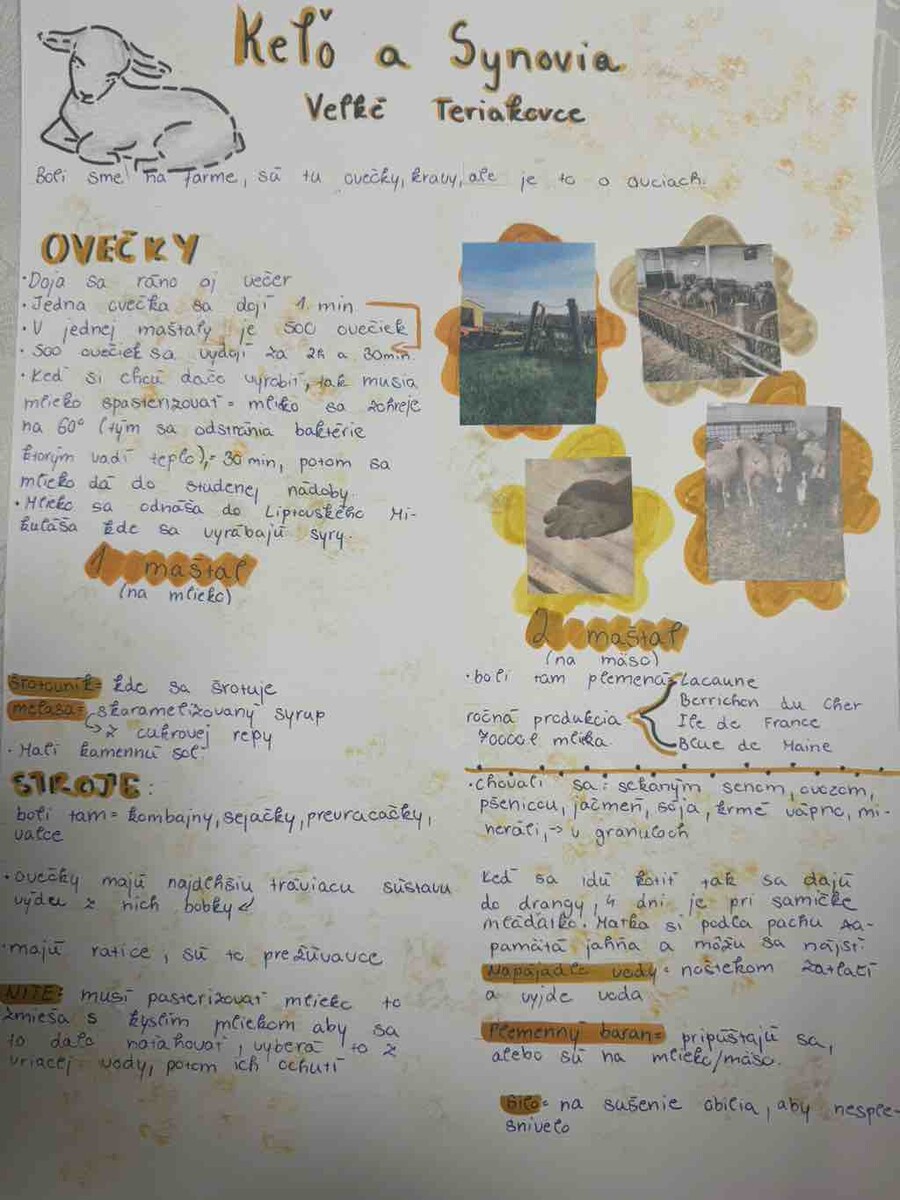 Keľo a Synovia
Veľké Teriakovce
Boli sme na farme, sú tu ovečky, kravy, ale je to o ovciach.
OVEČKY
• Doja sa ráno aj večer
• Jedna ovečka sa dojí 1 min
• V jednej maštaly je 500 ovečiek
• 500 ovečiek sa vydojí za 2h a 30min.
• Keď si chcú dačo vyrobiť, tak musia
mlieko spasterizovať = mliko sa zohreje
na 60° (tým sa odstránia baktérie
ktorým vadí teplo),= 30 min, potom sa
mlieko dá do studenej nádoby.
• Mlieko sa odnáša do Liptovského Mi-
kuláša kde sa vyrábajú syry.
1 maštaľ
(na mlieko)
šrotovník= kde sa šrotuje
melasa= skaramelizovaný syrup
z cukrovej repy
• Mali kamennú soľ
STROJE:
boli tam= kombajny, sejačky, prevracačky,
valce
• ovečky majú najdlhšiu tráviacu sústavu
výdu z nich bobky
• majú ratice, sú to prežúvavce
NITE: musí pasterizovať mlieko to
zmieša s kyslím mliekom aby sa
to dalo naťahovať, vyberá to z
vriacej vody, potom ich ochutí
2 maštaľ
(na mäso)
• boli tam plemená
Lacaune
Berrichon du Cher
Ile de France
Blue de Maine
ročná produkcia
70000l mlika.
• chovali sa: sekaným senom, ovozom,
pšenicou, jačmeň, sója, krmé vápno, mi-
neráli, → v granuloch
Keď sa idú kotiť tak sa dajú
do drangy, 4 dni je pri samičke
mláďatko. Matka si podľa pachu za-
pamätá jahňa a môžu sa nájsť
Napájadlo vody= noštekom zatlačí
a vyjde voda
Plemenný baran= pripúšťajú sa,
alebo sú na mlieko/mäso.
Silo= na sušenie obilia, aby nesple-
snivelo